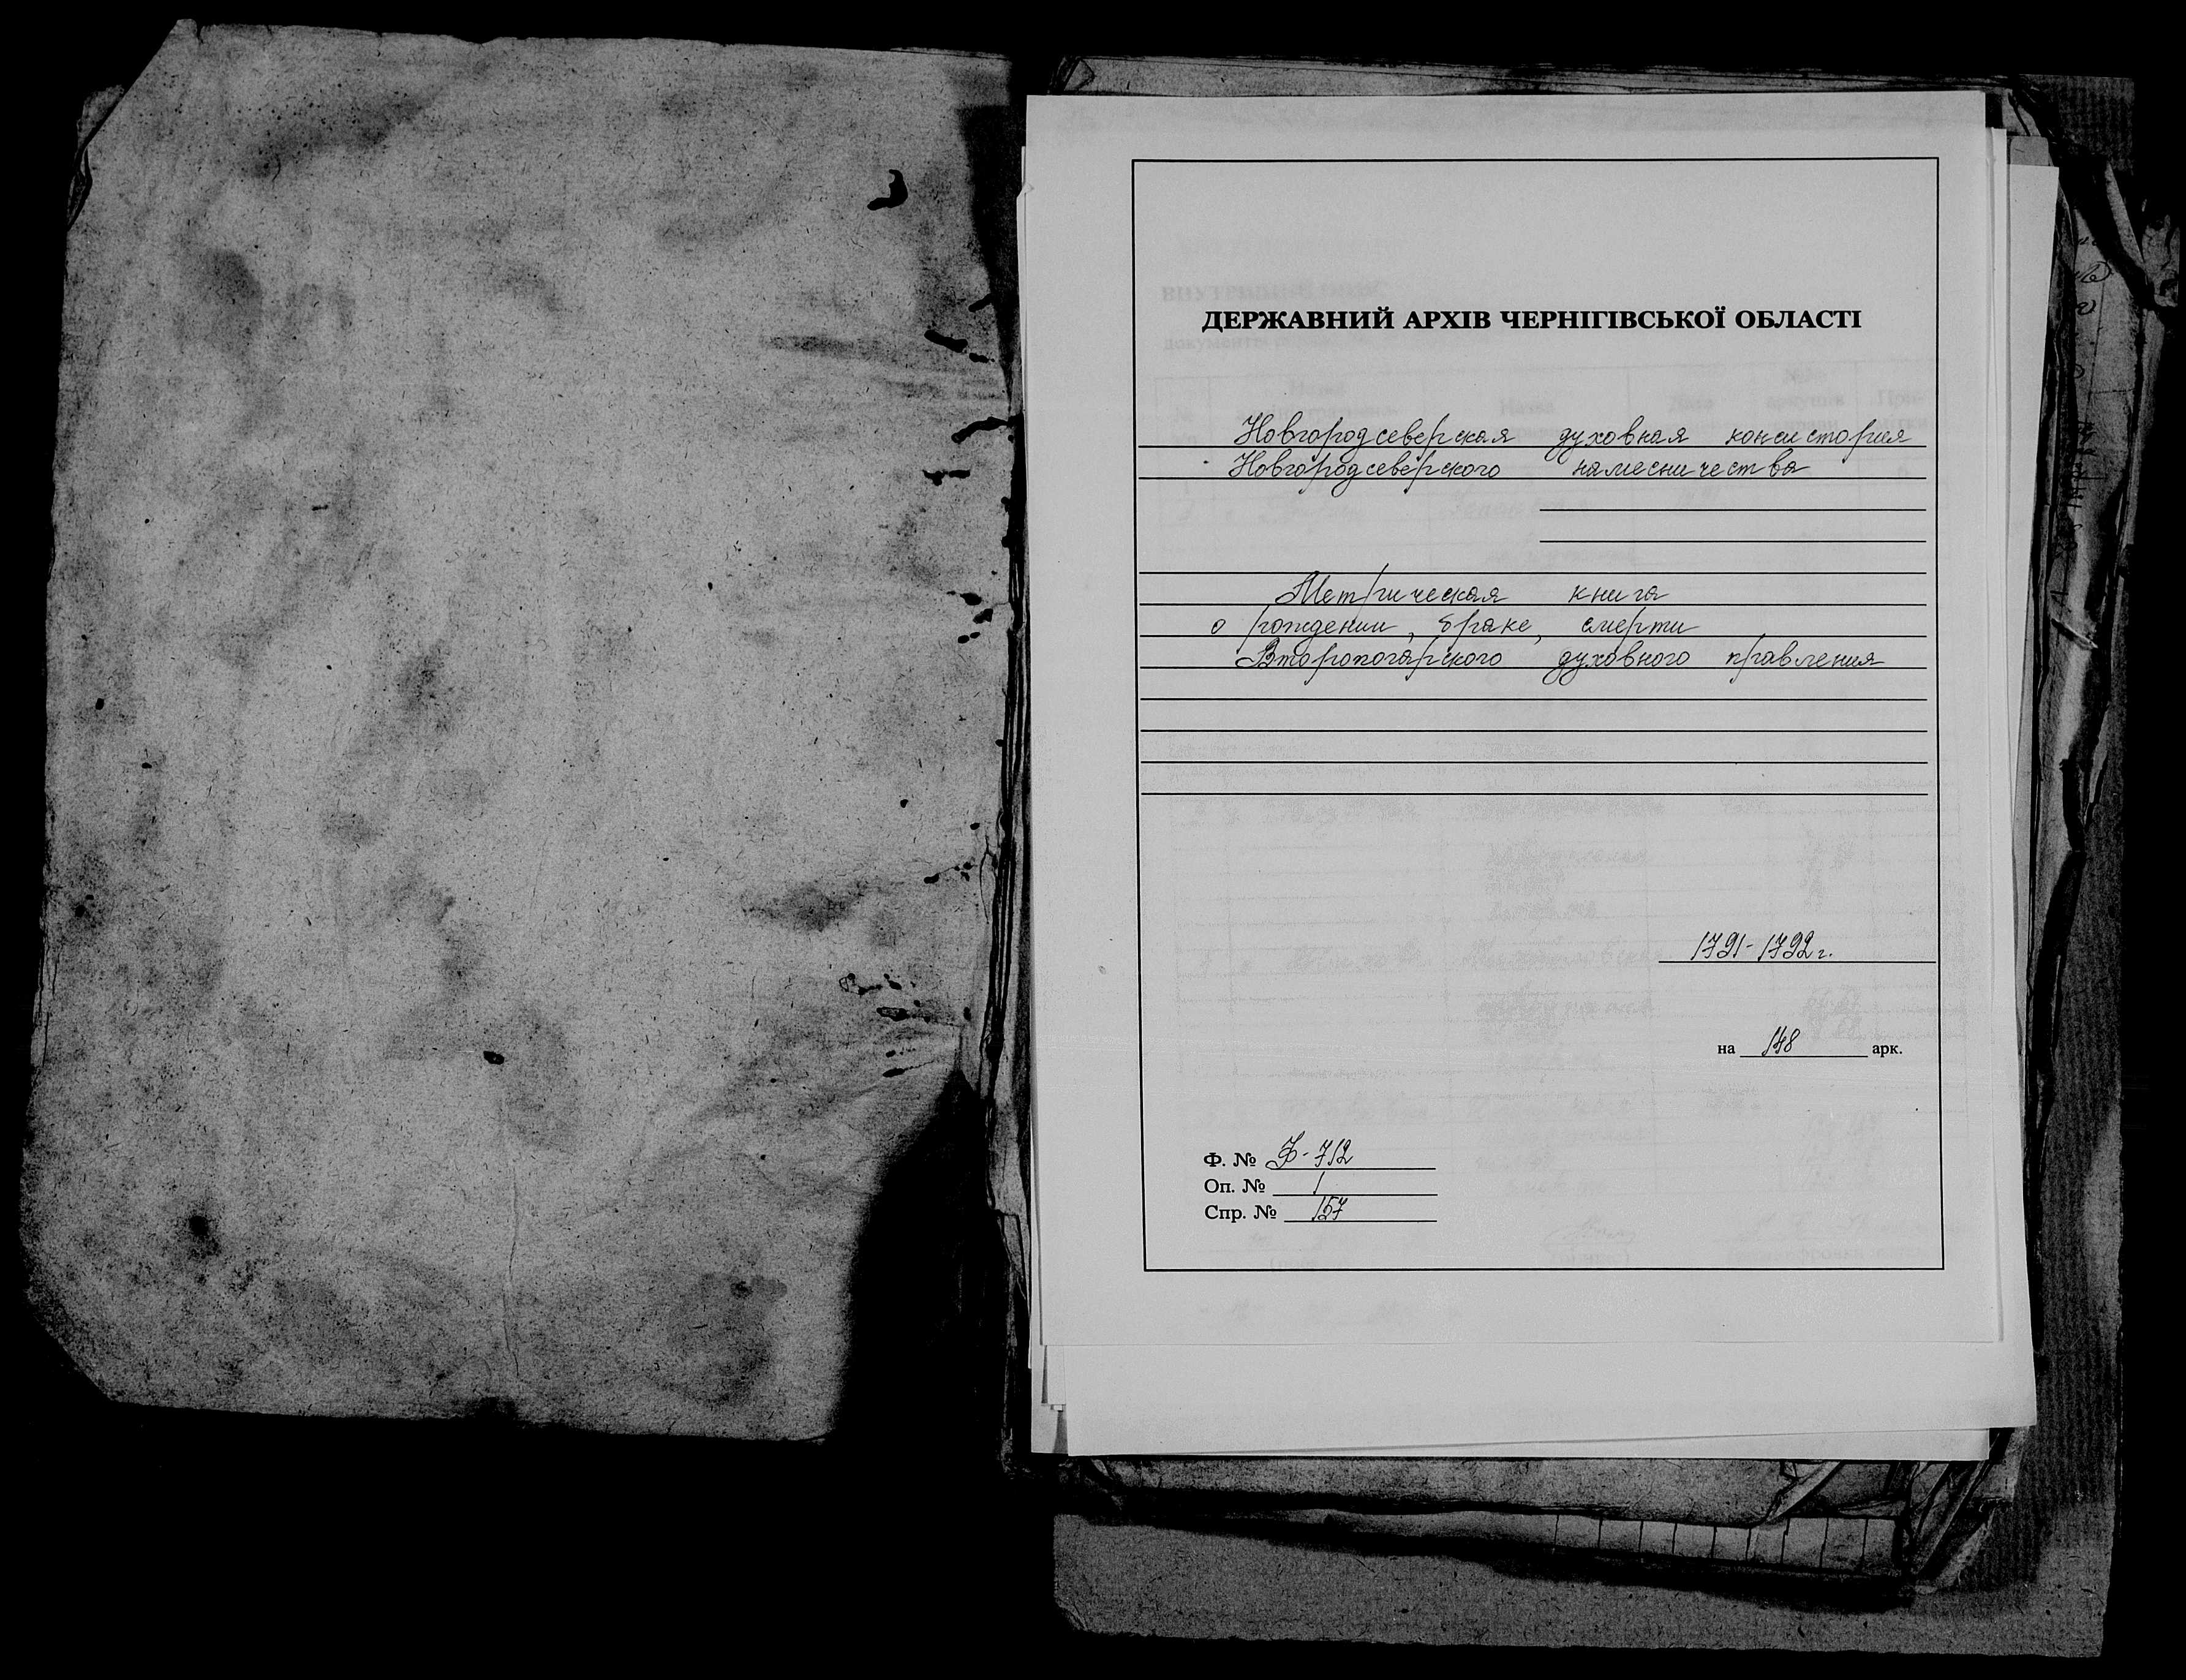 ДЕРЖАВНИЙ АРХІВ ЧЕРНІГІВСЬКОЇ ОБЛАСТІ
Новгородсеверская духовная консистория
Новгородсеверского намесничества
Метрическая книга
о рождении, браке, смерти
Второпогарского духовного правления
1791-1792 г.
на 148 арк.
Ф. № Ф-712
Оп. № 1
Спр. № 157